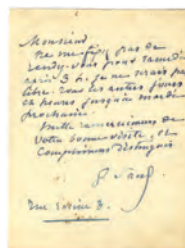 Monsieur
ne me fixez pas de
rendez-vous pour samedi
3 h. je ne serais pas
libre. tous les autres jours
ca heures jusqu'à mardi
prochain.
Mille remerciements de
votre bonne visite, et
compliments distingués
rue 3.